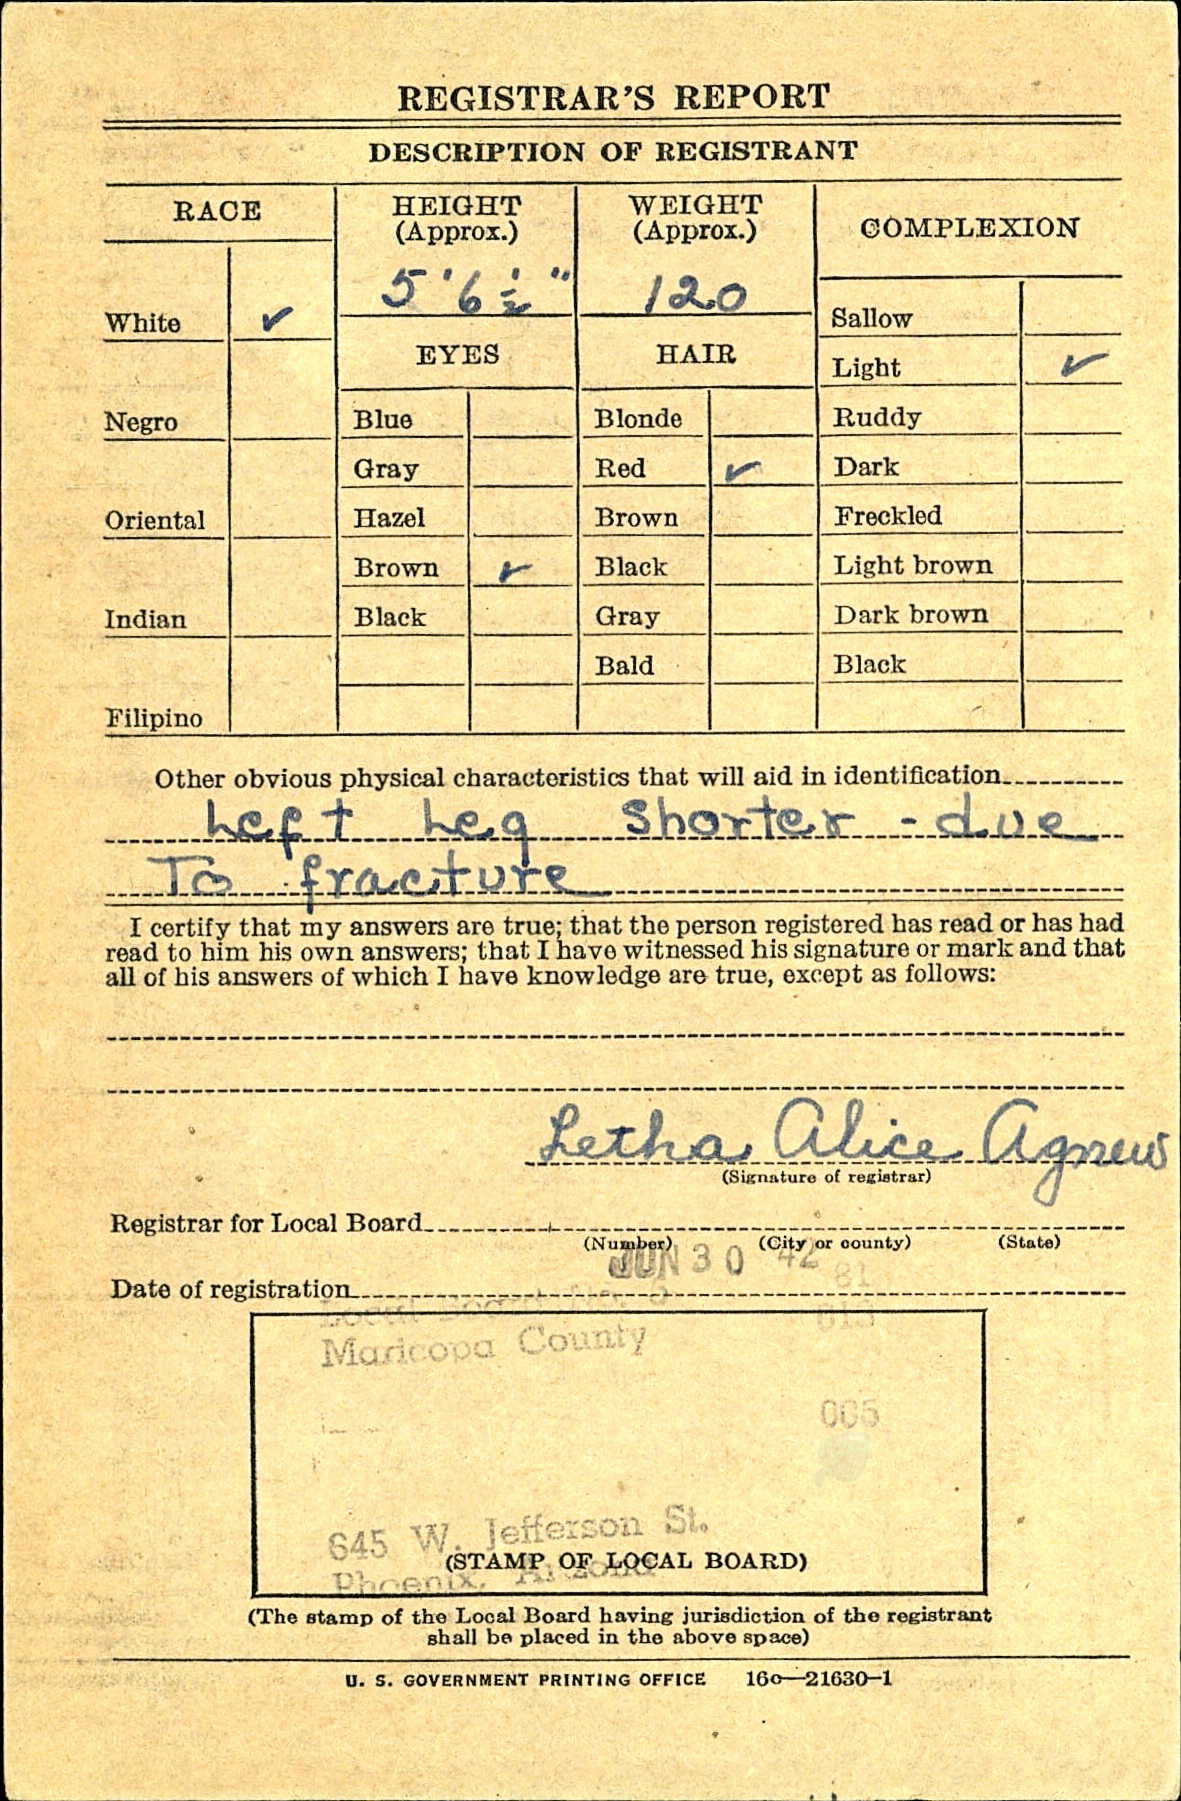 REGISTRAR'S REPORT
DESCRIPTION OF REGISTRANT
RACE
White ✓
Negro
Oriental
Indian
Filipino
HEIGHT
(Approx.)
5' 6 1/2"
EYES
Blue
Gray
Hazel
Brown ✓
Black
WEIGHT
(Approx.)
120
HAIR
Blonde
Red ✓
Brown
Black
Gray
Bald
COMPLEXION
Sallow
Light ✓
Ruddy
Dark
Freckled
Light brown
Dark brown
Black
Other obvious physical characteristics that will aid in identification
Left Leg Shorter - due
To fracture
I certify that my answers are true; that the person registered has read or has had
read to him his own answers; that I have witnessed his signature or mark and that
all of his answers of which I have knowledge are true, except as follows:
Letha Alice Agnew
(Signature of registrar)
Registrar for Local Board
(Number) (City or county) (State)
JUN 30 42
Date of registration
81
Local Board No. 5
013
Maricopa County
005
645 W. Jefferson St.
(STAMP OF LOCAL BOARD)
Phoenix, Arizona
(The stamp of the Local Board having jurisdiction of the registrant
shall be placed in the above space)
U. S. GOVERNMENT PRINTING OFFICE 16o—21630-1